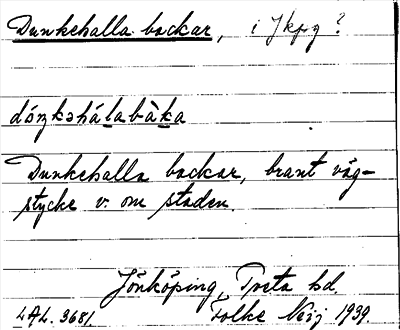 Dunkehalla backar, i Jkpg?
dóŋkəhálabàka
Dunkehalla backar, brant väg-
stycke v. om staden.
Jönköping, Tveta hd.
LAL. 3681 Folke 1939.